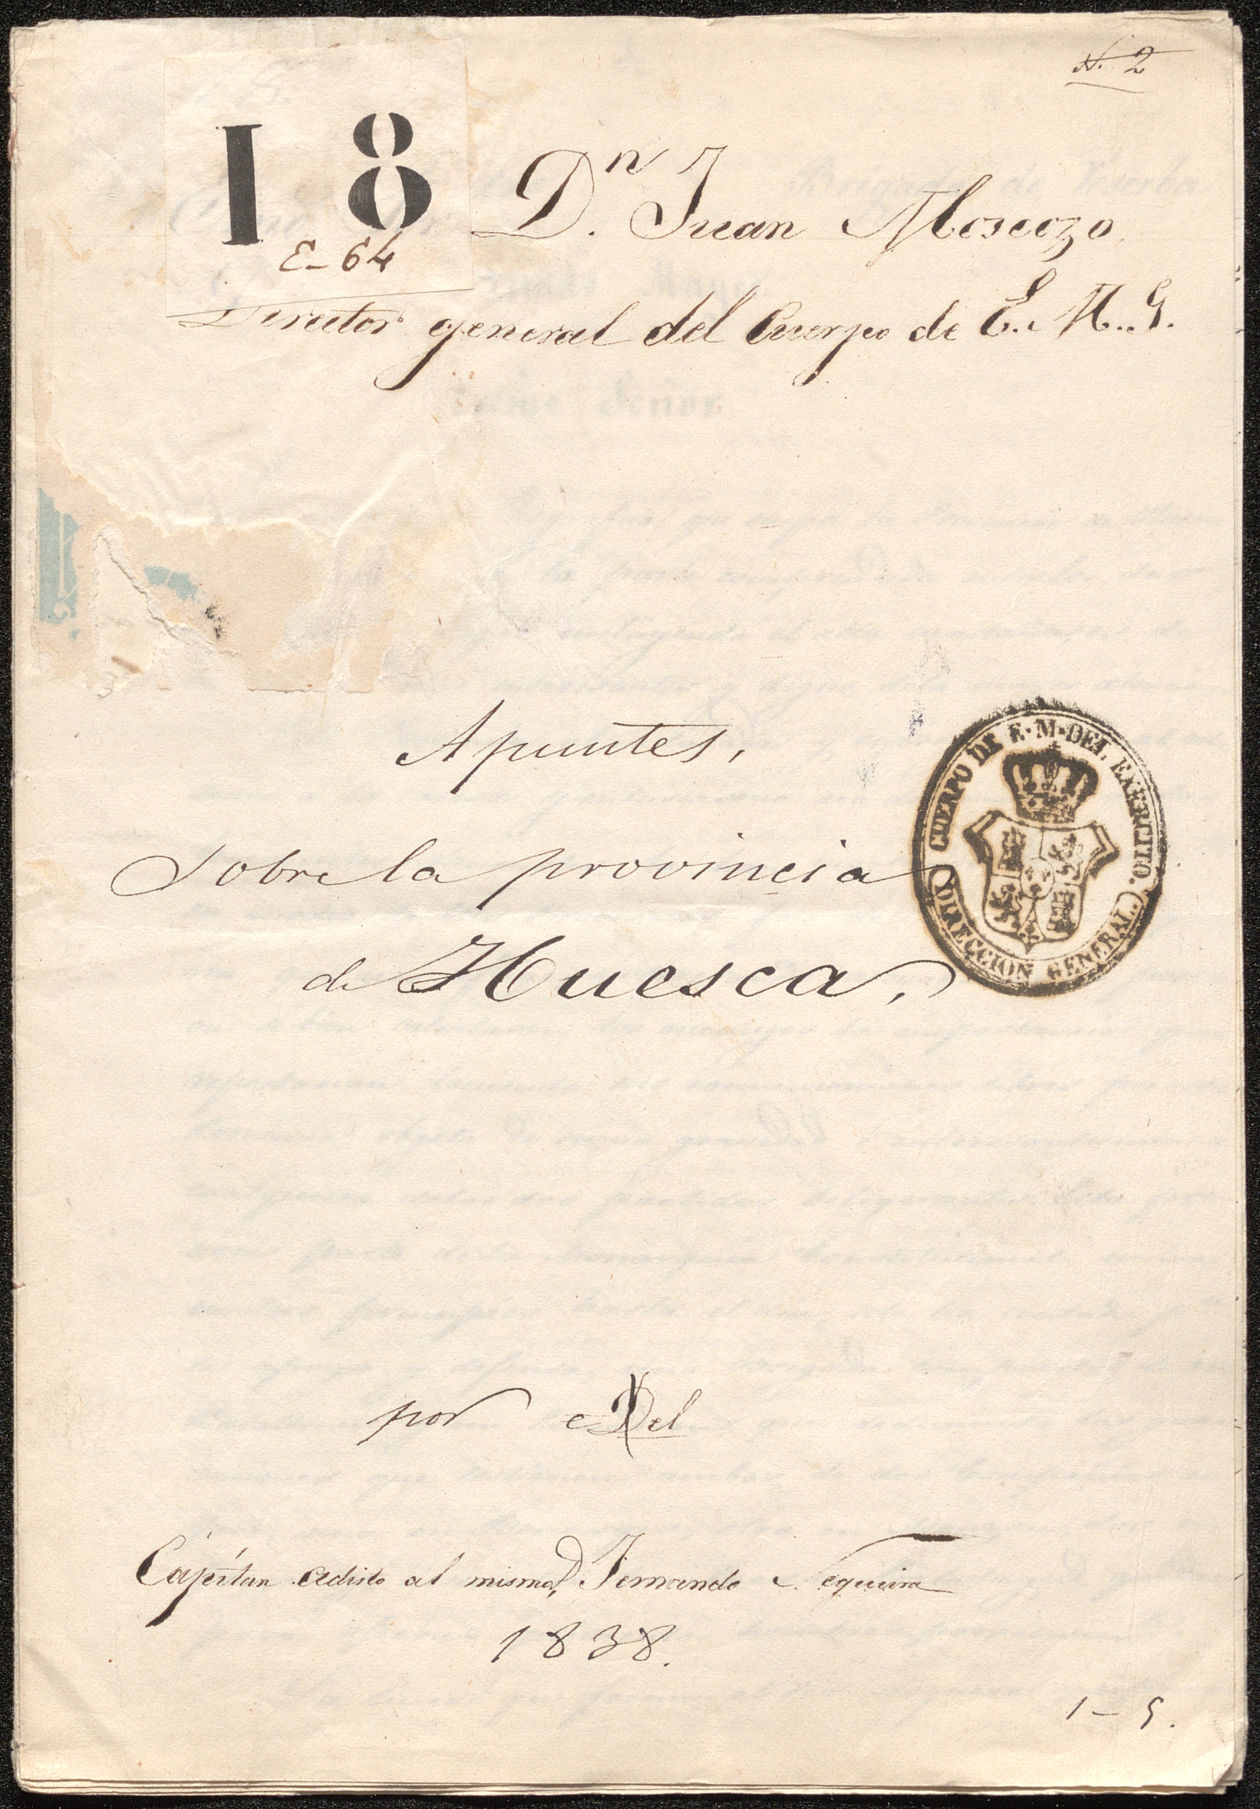 N. 2
18
E-64
Dn. Juan Moscozo
Director general del Cuerpo de E. M. G.
Apuntes,
Sobre la provincia
de Huesca,
CUERPO DE E·M·DEL EXERCITO.
DIRECCION GENERAL.
por el
Capitan adicto al mismo, D. Fernando Nequeira
1838.
1-5.